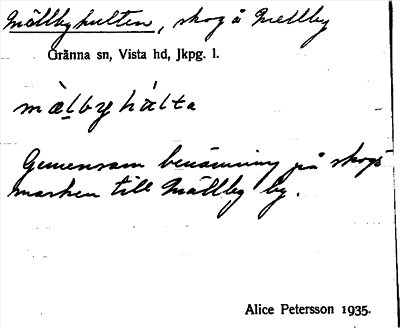 Mällbyhulten, skog å Mellby
Gränna sn, Vista hd, Jkpg. l.
mälbyhálta
Gemensam benämning på skogs
marken till Mällby by.
Alice Petersson 1935.